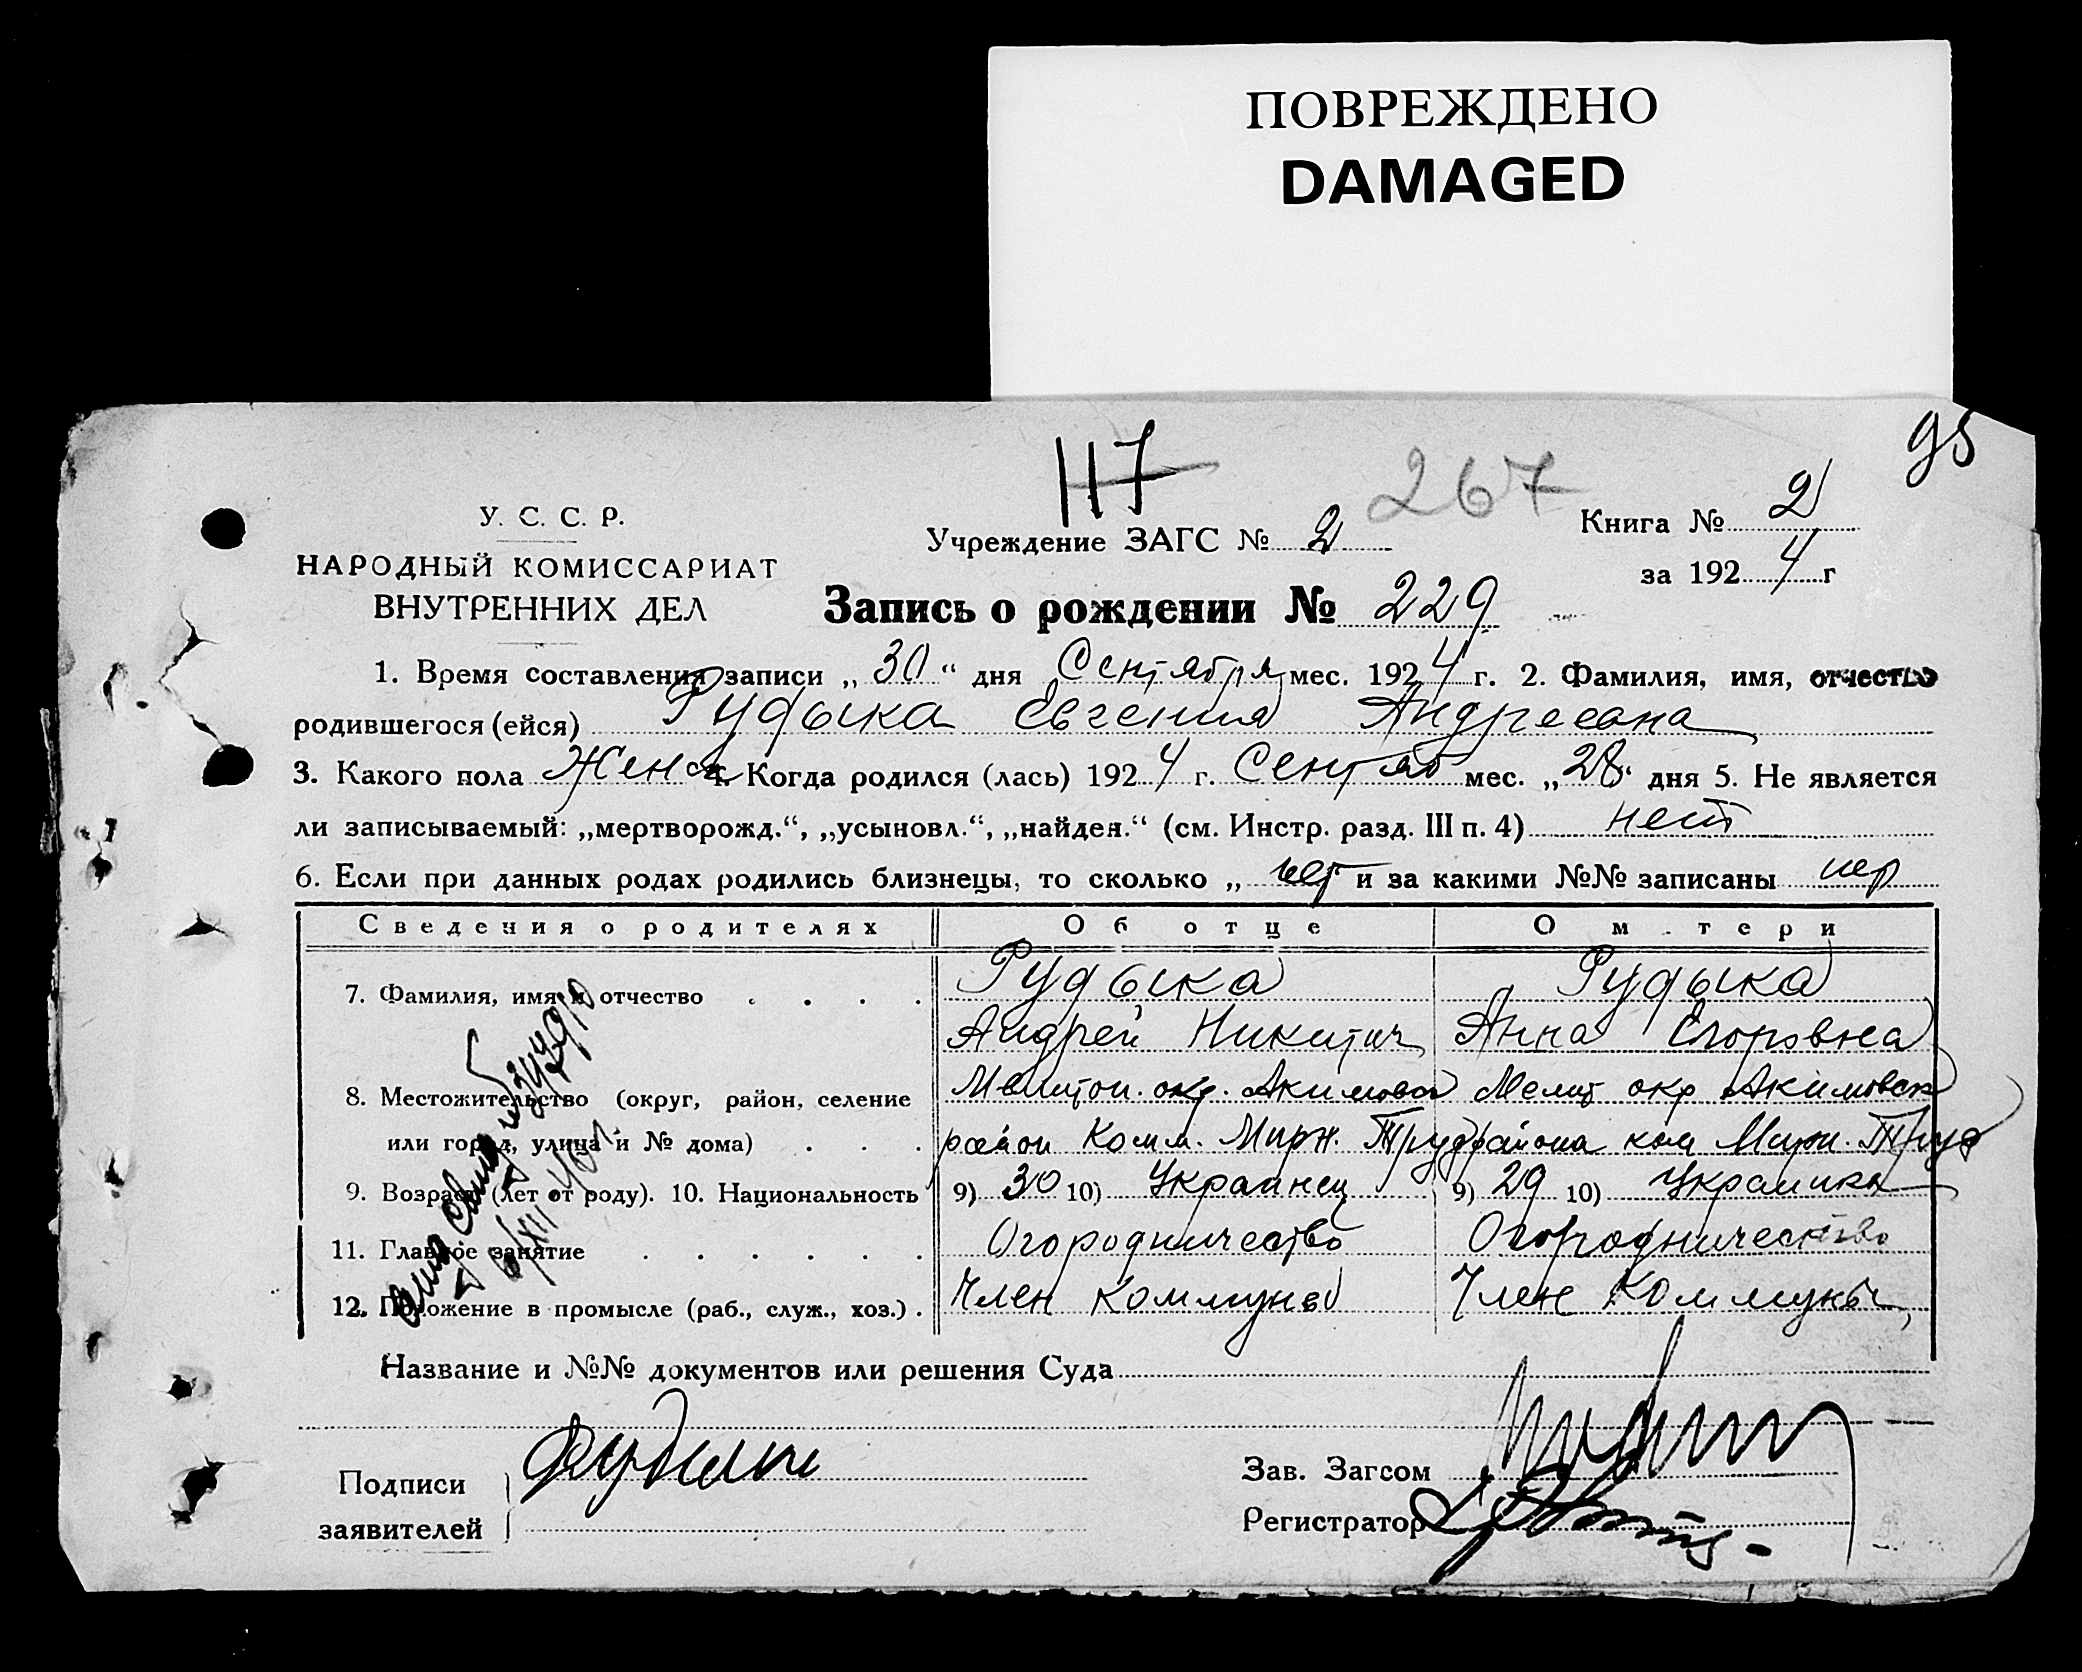 ПОВРЕЖДЕНО
DAMAGED
95
117
267
У. С. С. Р.
НАРОДНЫЙ КОМИССАРИАТ
ВНУТРЕННИХ ДЕЛ
Учреждение ЗАГС № 2
Книга № 2
за 1924 г
Запись о рождении № 229
1. Время составления записи „30“ дня Сентября мес. 1924 г. 2. Фамилия, имя, отчество
родившегося (ейся) Рудыка Евгения Андреевна
3. Какого пола Женск 4. Когда родился (лась) 1924 г. Сентяб мес. „28“ дня 5. Не является
ли записываемый: „мертворожд.“, „усыновл.“, „найден.“ (см. Инстр. разд. III п. 4) нет
6. Если при данных родах родились близнецы, то сколько „ нет и за какими №№ записаны нет
Сведения о родителях Об отце О м тери
7. Фамилия, имя и отчество Рудыка Рудыка
Андрей Никитич Анна Егоровна
8. Местожительство (округ, район, селение Мелитоп. окр. Акимовск Мелит окр Акимовск
или город, улица и № дома) район Комм. Мирн. Труд района ком Мирн. Труд
9. Возраст (лет от роду). 10. Национальность 9) 30 10) Украинец 9) 29 10) Украинка
11. Главное занятие Огородничество Огородничество
12. Положение в промысле (раб., служ., хоз.) Член Коммуны Член Коммуны
Название и №№ документов или решения Суда
Подписи
заявителей
Зав. Загсом
Регистратор